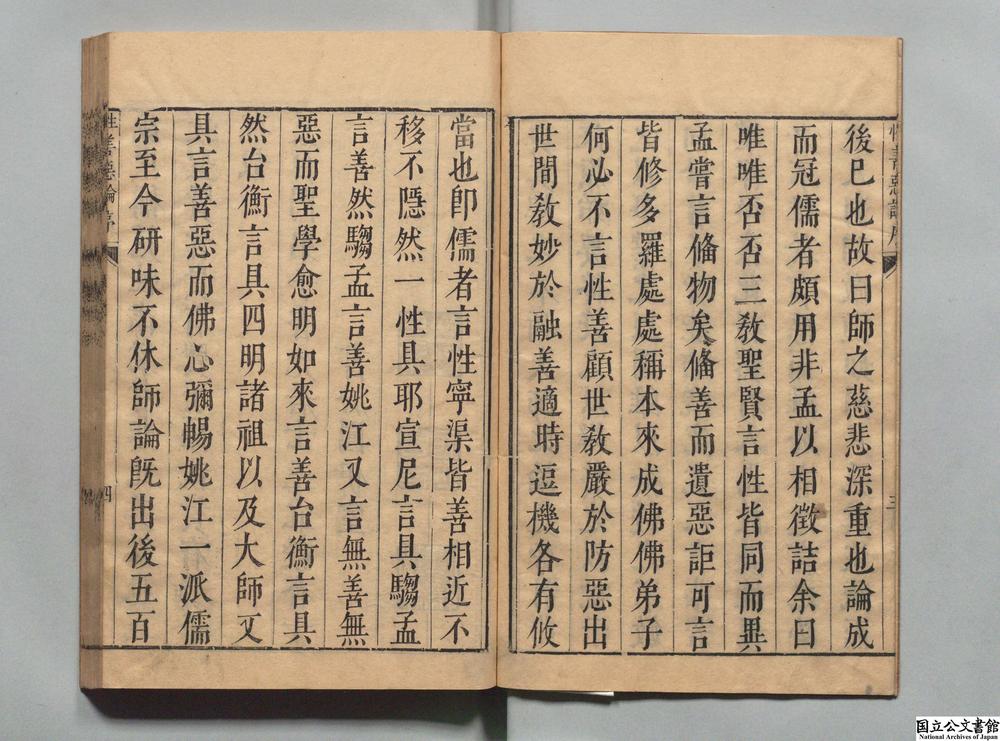 後已也故曰師之慈悲深重也論成
而冠儒者頗用非孟以相徵詰余曰
唯唯否否三敎聖賢言性皆同而異
孟嘗言俻物矣俻善而遺惡詎可言
皆修多羅處處稱本來成佛佛弟子
何必不言性善顧世敎嚴於防惡出
世間敎妙於融善適時逗機各有攸
三
當也卽儒者言性寧渠皆善相近不
移不隱然一性具耶宣尼言具騶孟
言善然騶孟言善姚江又言無善無
惡而聖學愈明如來言善台衡言具
然台衡言具四明諸祖以及大師又
具言善惡而佛心彌暢姚江一派儒
宗至今研味不休師論旣出後五百
性善惡論序
四
国立公文書館
National Archives of Japan